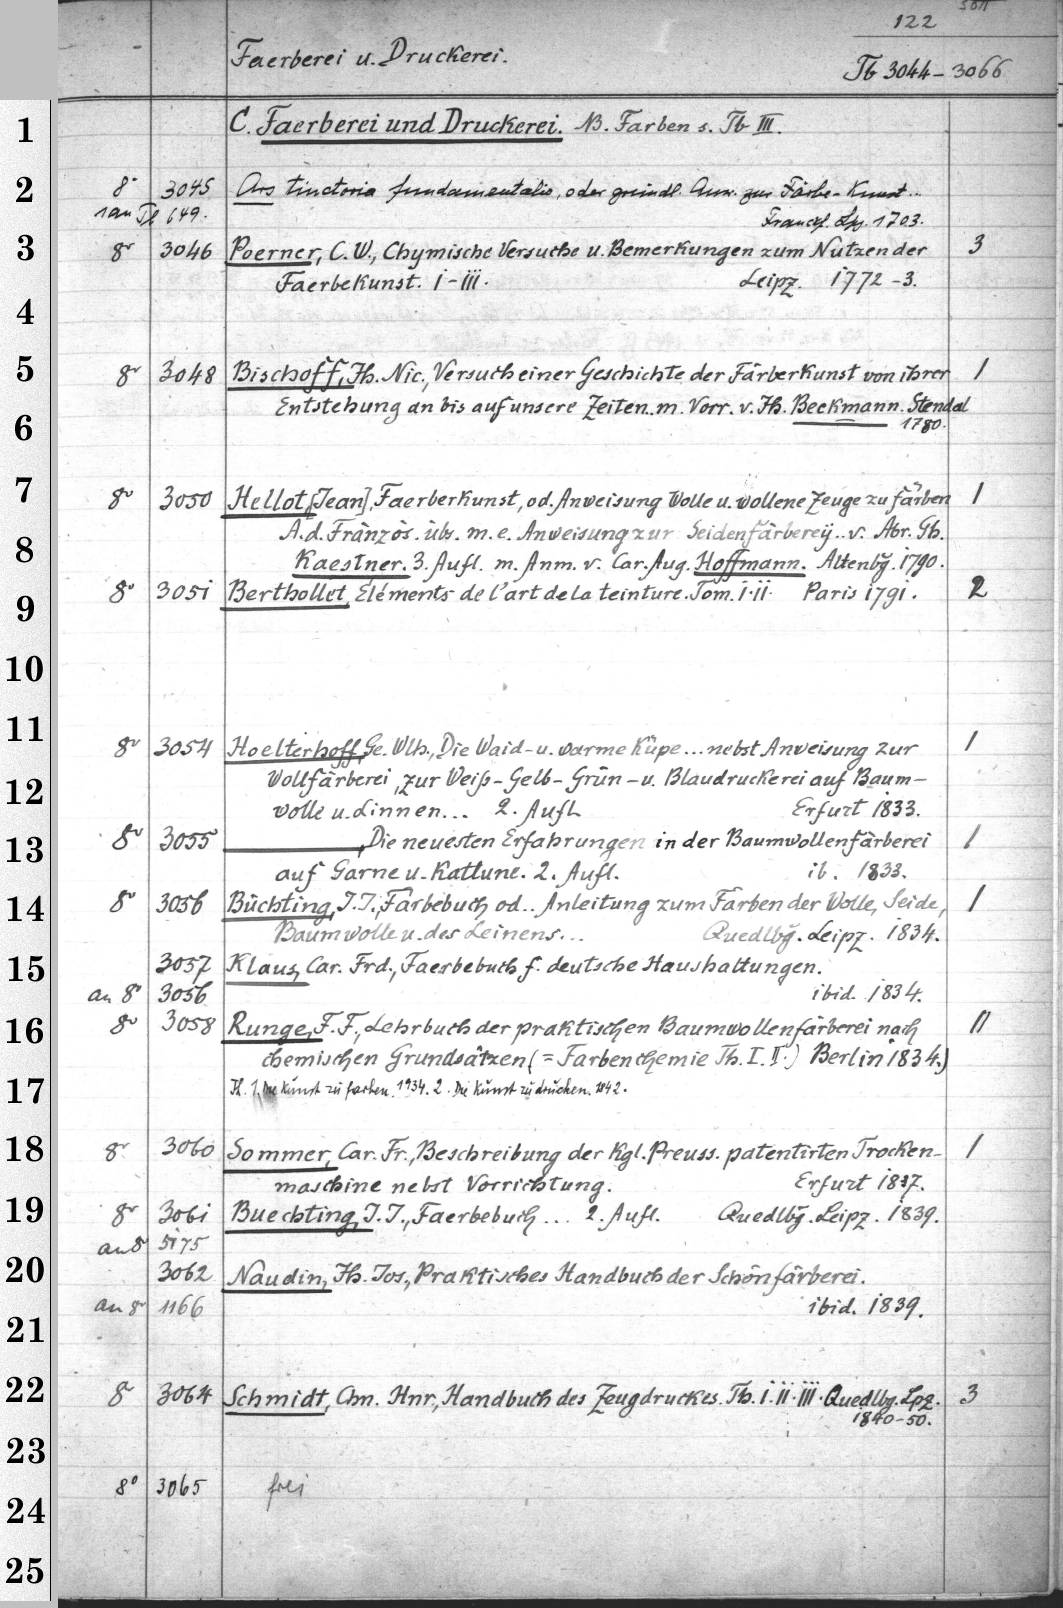 122
Faerberei u. Druckerei.
Tb 3044-3066
1 C. Faerberei und Druckerei. NB. Farben s. Tb III.
2 8° 3045 Ars tinctoria fundamentalis, oder gründl. Anw. zur Färbe-Kunst..
1 an Tl 649. Franckf. Lpz. 1703.
3 8° 3046 Poerner, C. W., Chymische Versuche u. Bemerkungen zum Nutzen der 3
Faerbekunst. I-III. Leipz. 1772-3.
4
5 8° 3048 Bischoff, Jh. Nic., Versuch einer Geschichte der Färberkunst von ihrer 1
Entstehung an bis auf unsere Zeiten. m. Vorr. v. Jh. Beckmann. Stendal
6 1780.
7 8° 3050 Hellot, [Jean], Faerberkunst, od. Anweisung Wolle u. wollene Zeuge zu färben 1
8 A. d. Französ. übs. m. e. Anweisung zur Seidenfärberey.. v. Abr. Gh.
Kaestner. 3. Aufl. m. Anm. v. Car. Aug. Hoffmann. Altenbg. 1790.
9 8° 3051 Berthollet, Eléments de l'art de la teinture. Tom. I.II. Paris 1791. 2
10
11 8° 3054 Hoelterhoff, Ge. Wlh., Die Waid- u. warme Küpe... nebst Anweisung zur 1
12 Wollfärberei, zur Weiß-Gelb-Grün-u. Blaudruckerei auf Baum-
wolle u. Linnen... 2. Aufl. Erfurt 1833.
13 8° 3055 , Die neuesten Erfahrungen in der Baumwollenfärberei 1
auf Garne u. Kattune. 2. Aufl. ib. 1833.
14 8° 3056 Büchting, J. J., Färbebuch od.. Anleitung zum Färben der Wolle, Seide, 1
Baumwolle u. des Leinens... Quedlbg. Leipz. 1834.
15 3057 Klaus, Car. Frd., Faerbebuch f. deutsche Haushaltungen.
an 8° 3056 ibid. 1834.
16 8° 3058 Runge, F. F., Lehrbuch der praktischen Baumwollenfärberei nach II
chemischen Grundsätzen (= Farbenchemie Th. I. II.) Berlin 1834.)
17 Th. 1. Die Kunst zu färben. 1934. 2. Die Kunst zu drucken. 1842.
18 8° 3060 Sommer, Car. Fr., Beschreibung der Kgl. Preuss. patentirten Trocken- 1
maschine nebst Vorrichtung. Erfurt 1837.
19 8° 3061 Buechting, J. J., Faerbebuch ... 2. Aufl. Quedlbg. Leipz. 1839.
an 8° 5175
20 3062 Naudin, Jh. Jos., Praktisches Handbuch der Schönfärberei.
an 8° 1166 ibid. 1839.
21
22 8° 3064 Schmidt, Chn. Hnr., Handbuch des Zeugdruckes. Th. I.II.III. Quedlbg. Lpz. 3
1840-50.
23
24 8° 3065 frei
25